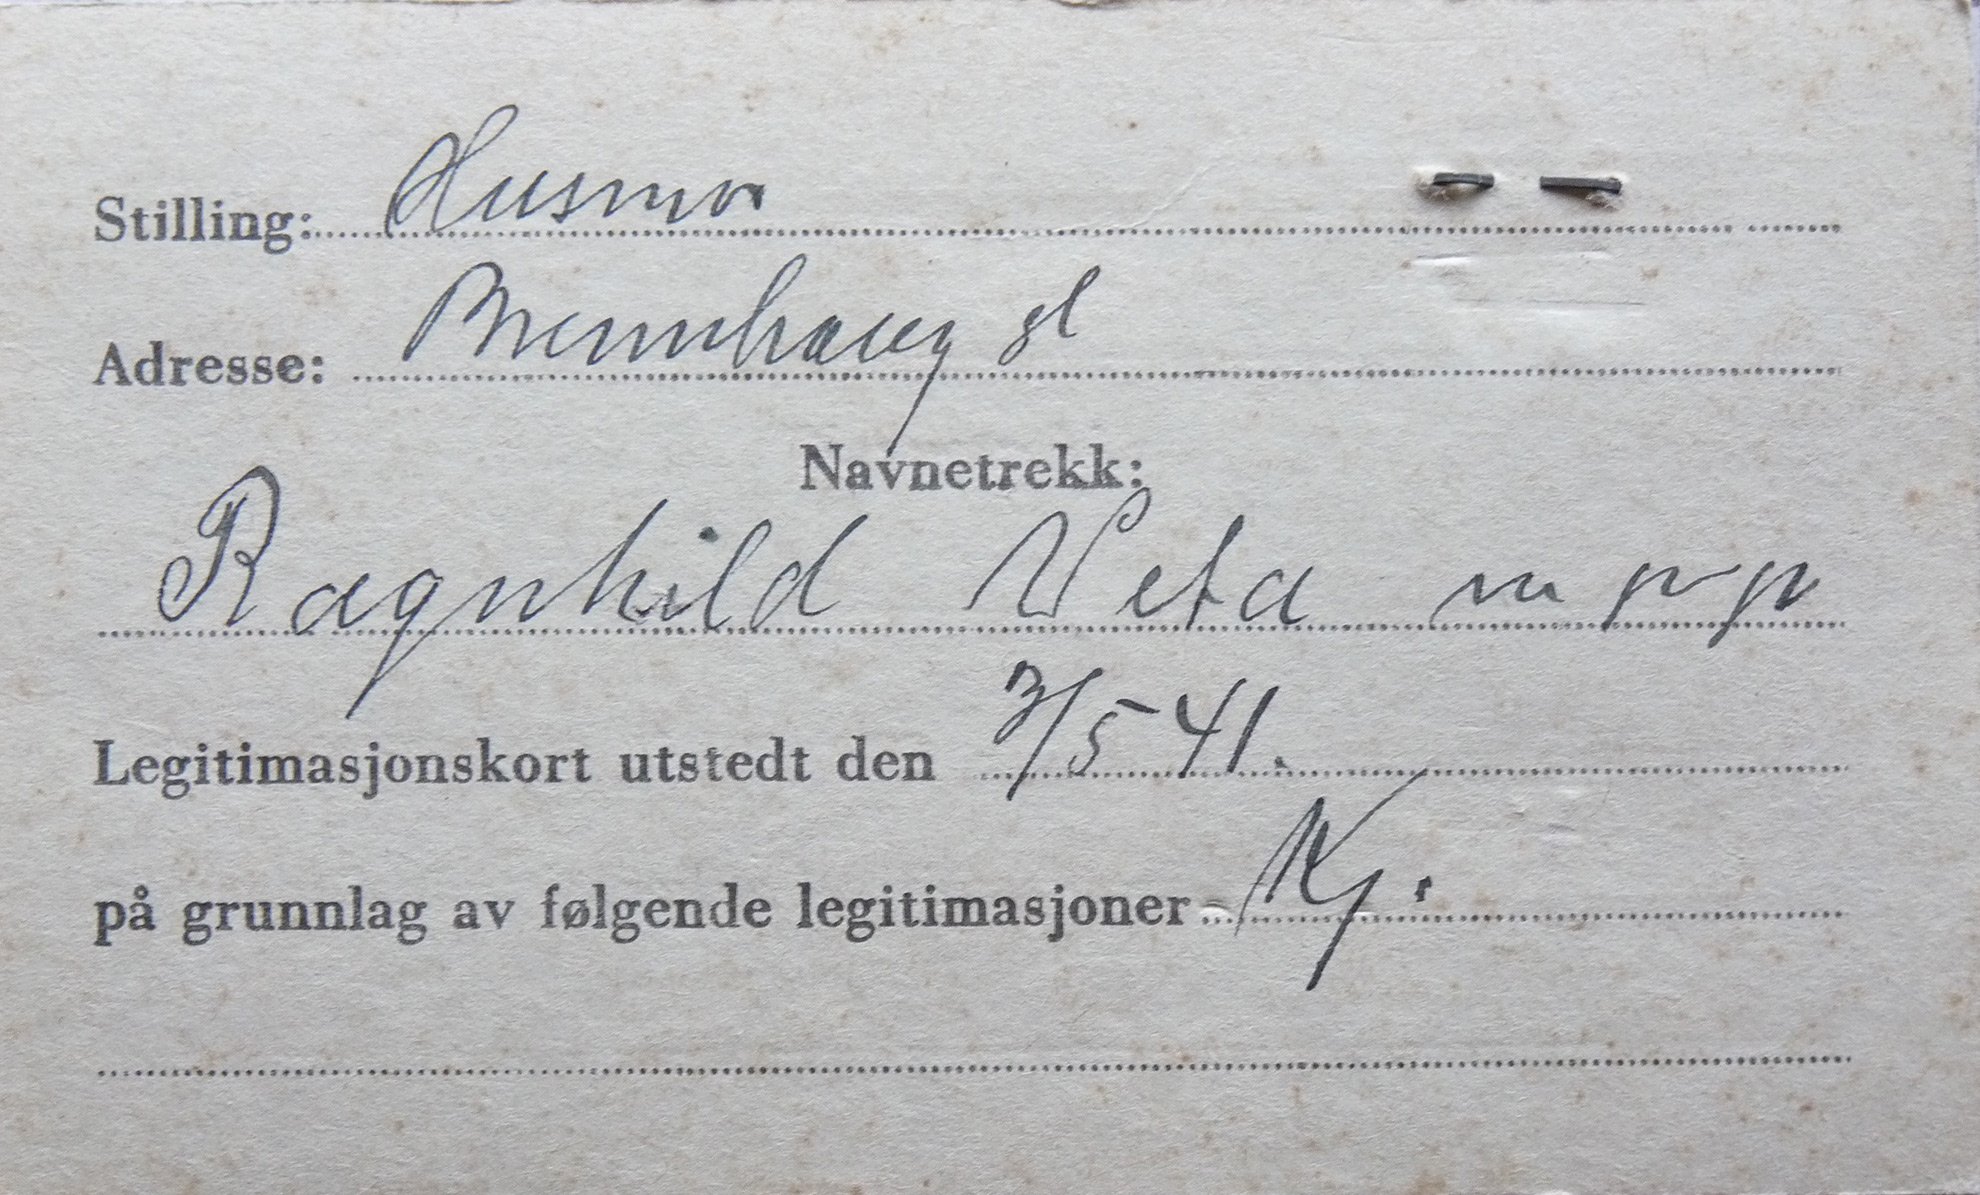 Stilling: Husmor
Adresse: Brennhaug st
Navnetrekk:
Ragnhild Veta m p p
Legitimasjonskort utstedt den 3/5 41.
på grunnlag av følgende legitimasjoner Kj.